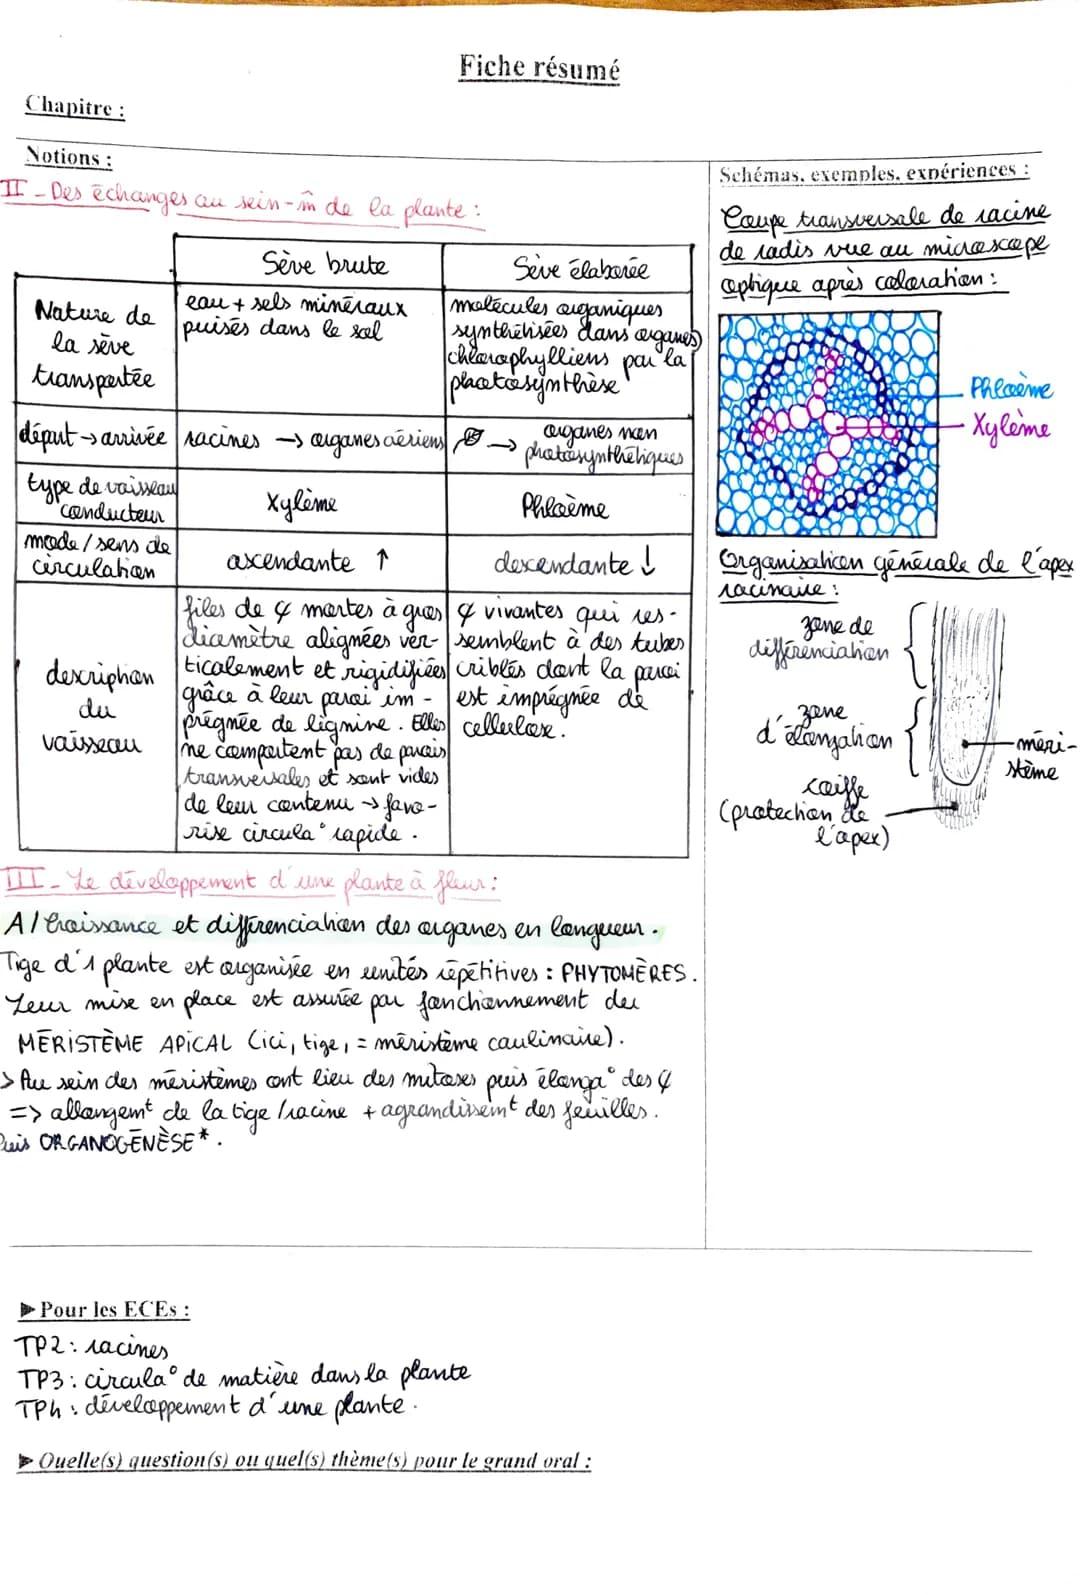 Fiche résumé
Chapitre :
Notions :
II - Des échanges au sein-m̂ de la plante :
Sève brute
Sève élaborée
Nature de
la sève
transportée
eau + sels minéraux
puisés dans le sol
molécules organiques
synthétisées dans organes
chlorophylliens par la
photosynthèse
départ → arrivée
racines → organes aériens
→ organes non
photosynthétiques
type de vaisseau
conducteur
Xylème
Phloème
mode / sens de
circulation
ascendante ↑
descendante ↓
description
du
vaisseau
files de ¢ mortes à gros
diamètre alignées ver-
ticalement et rigidifiées
grâce à leur paroi im-
prégnée de lignine. Elles
ne comportent pas de parois
transversales et sont vides
de leur contenu → favo-
rise circula° rapide.
¢ vivantes qui res-
semblent à des tubes
criblés dont la paroi
est imprégnée de
cellulose.
III - Le développement d'une plante à fleur :
A / Croissance et différenciation des organes en longueur.
Tige d'1 plante est organisée en unités répétitives : PHYTOMÈRES.
Leur mise en place est assurée par fonctionnement du
MÉRISTÈME APICAL (ici, tige, = méristème caulinaire).
> Au sein des méristèmes ont lieu des mitoses puis élonga° des ¢
=> allongemt de la tige / racine + agrandissemt des feuilles.
Puis ORGANOGÉNÈSE*.
Schémas, exemples, expériences :
Coupe transversale de racine
de radis vue au microscope
optique après coloration :
Phloème
Xylème
Organisation générale de l'apex
racinaire :
zone de
différenciation
zone
d'élongation
méri-
stème
coiffe
(protection de
l'apex)
➤ Pour les ECEs :
TP2 : racines
TP3 : circula° de matière dans la plante
TP4 : développement d'une plante.
➤ Quelle(s) question(s) ou quel(s) thème(s) pour le grand oral :